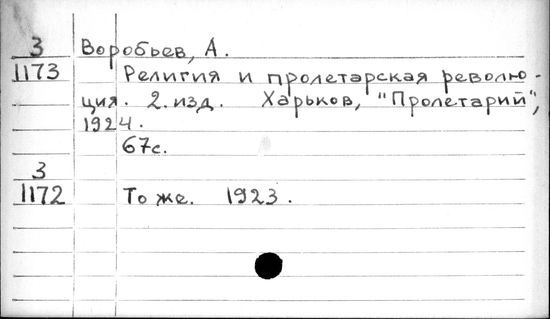 3 Воробьев, А.
1173 Религия и пролетарская револю-
ция. 2. изд. Харьков, "Пролетарий",
1924.
67с.
3
1172 То же. 1923.